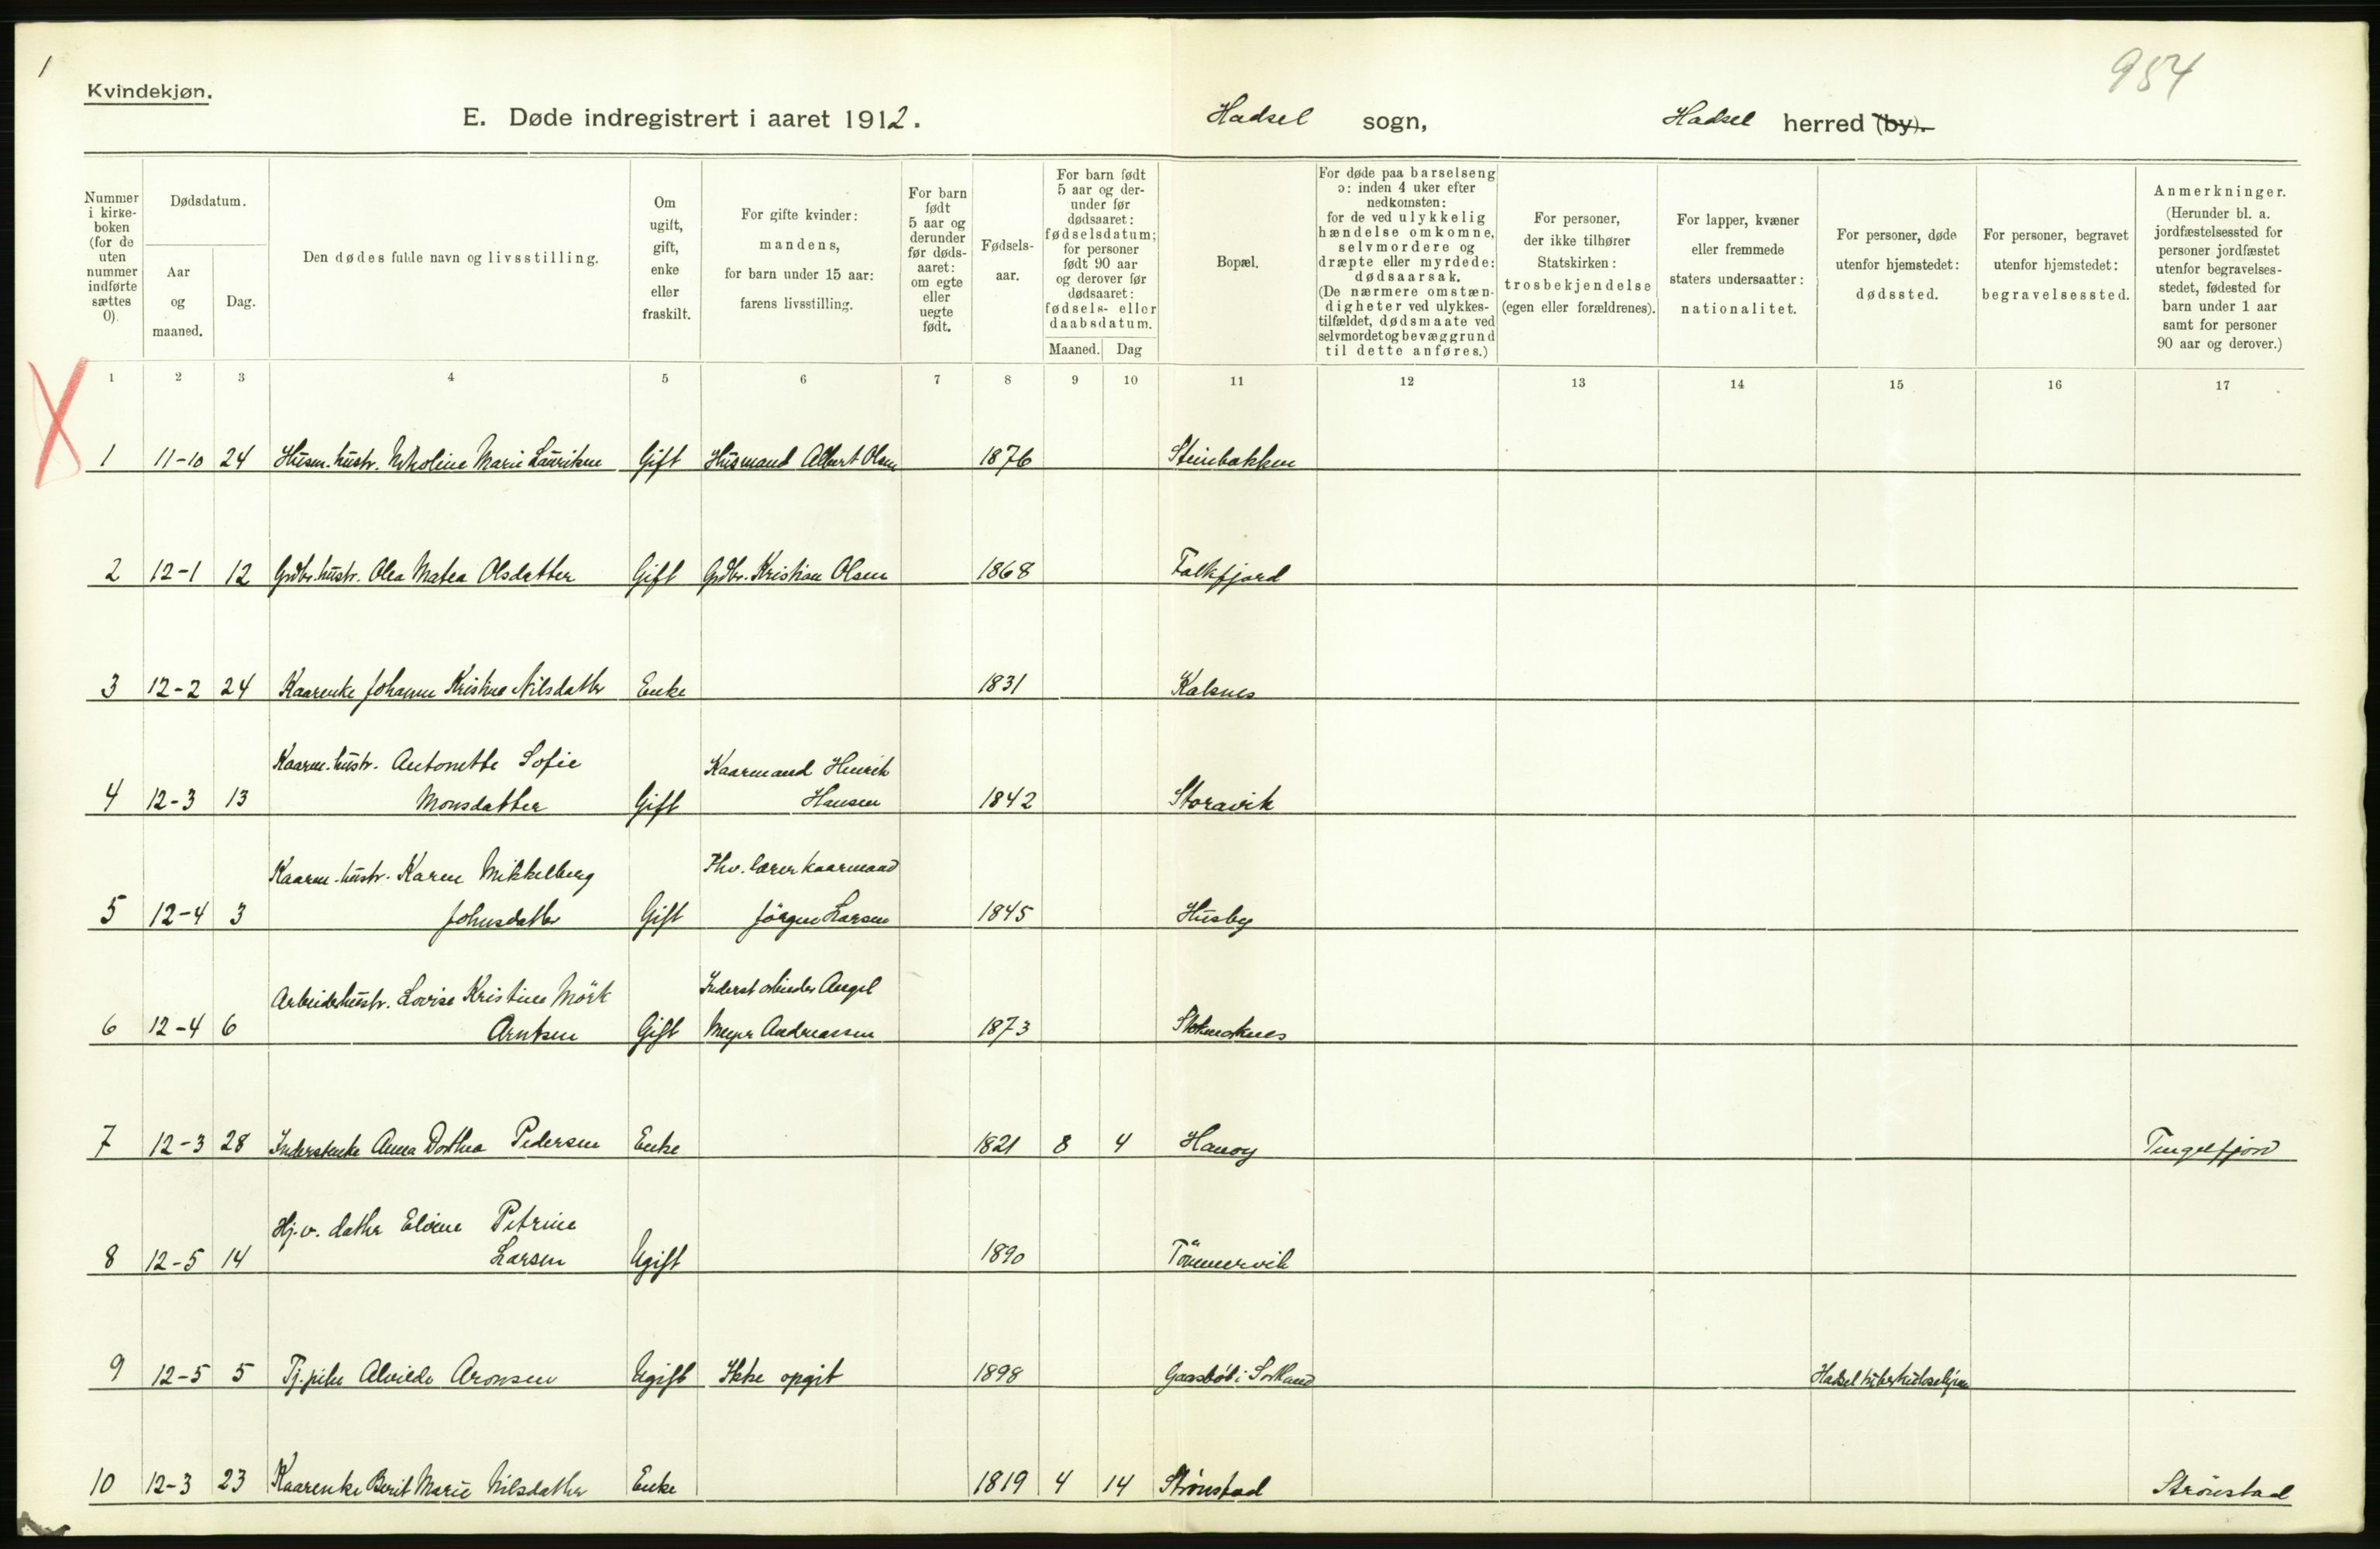 1
984
Kvindekjøn.
E. Døde indregistrert i aaret 1912. Hadsel sogn, Hadsel herred (by).
Nummer
i kirke-
boken
(for de
uten
nummer
indførte
sættes
0).
Dødsdatum.
Aar
og
maaned.
Dag.
Den dødes fulde navn og livsstilling.
Om
ugift,
gift,
enke
eller
fraskilt.
For gifte kvinder:
mandens,
for barn under 15 aar:
farens livsstilling.
For barn
født
5 aar og
derunder
før døds-
aaret:
om egte
eller
uegte
født.
Fødsels-
aar.
For barn født
5 aar og der-
under før
dødsaaret:
fødselsdatum;
for personer
født 90 aar
og derover før
dødsaaret:
fødsels- eller
daabsdatum.
Maaned. Dag
Bopæl.
For døde paa barselseng
ɔ: inden 4 uker efter
nedkomsten:
for de ved ulykkelig
hændelse omkomne,
selvmordere og
dræpte eller myrdede:
dødsaarsak.
(De nærmere omstæn-
digheter ved ulykkes-
tilfældet, dødsmaate ved
selvmordet og bevæggrund
til dette anføres.)
For personer,
der ikke tilhører
Statskirken:
trosbekjendelse
(egen eller forældrenes).
For lapper, kvæner
eller fremmede
staters undersaatter:
nationalitet.
For personer, døde
utenfor hjemstedet:
dødssted.
For personer, begravet
utenfor hjemstedet:
begravelsessted.
Anmerkninger.
(Herunder bl. a.
jordfæstelsessted for
personer jordfæstet
utenfor begravelses-
stedet, fødested for
barn under 1 aar
samt for personer
90 aar og derover.)
1 2 3 4 5 6 7 8 9 10 11 12 13 14 15 16 17
1 11-10 24 Husm. hustr. Nikoline Marie Lauritsen Gift Husmand Albert Olsen 1876 Steinbakken
2 12-1 12 Grdbr. hustr. Olea Matea Olsdatter Gift Grdbr. Kristian Olsen 1868 Falkfjord
3 12-2 24 Kaarenke Johanne Kristine Nilsdatter Enke 1831 Kalsnes
Kaarm. hustr. Antonette Sofie Kaarmand Henrik
4 12-3 13 Monsdatter Gift Hansen 1842 Storavik
Kaarm. hustr. Karen Mikkelberg Fhv. lærer kaarmand
5 12-4 3 Johnsdatter Gift Jörgen Larsen 1845 Husby
Arbeiderhustr. Lovise Kristine Mörk Inderst arbeider Angel
6 12-4 6 Arntsen Gift Meyer Andreassen 1873 Stokmarknes
7 12-3 28 Inderstenke Anna Dorthea Pedersen Enke 1821 8 4 Hanøy Tengelfjord
Hj. v. datter Eline Petrine
8 12-5 14 Larsen Ugift 1890 Tömmervik
9 12-5 5 Tj. pike Alvilde Aronsen Ugift Ikke opgit 1898 i Sortland Hadsel tuberkulosehjem
10 12-3 23 Kaarenke Berit Marie Nilsdatter Enke 1819 4 14 Strönstad Strönstad